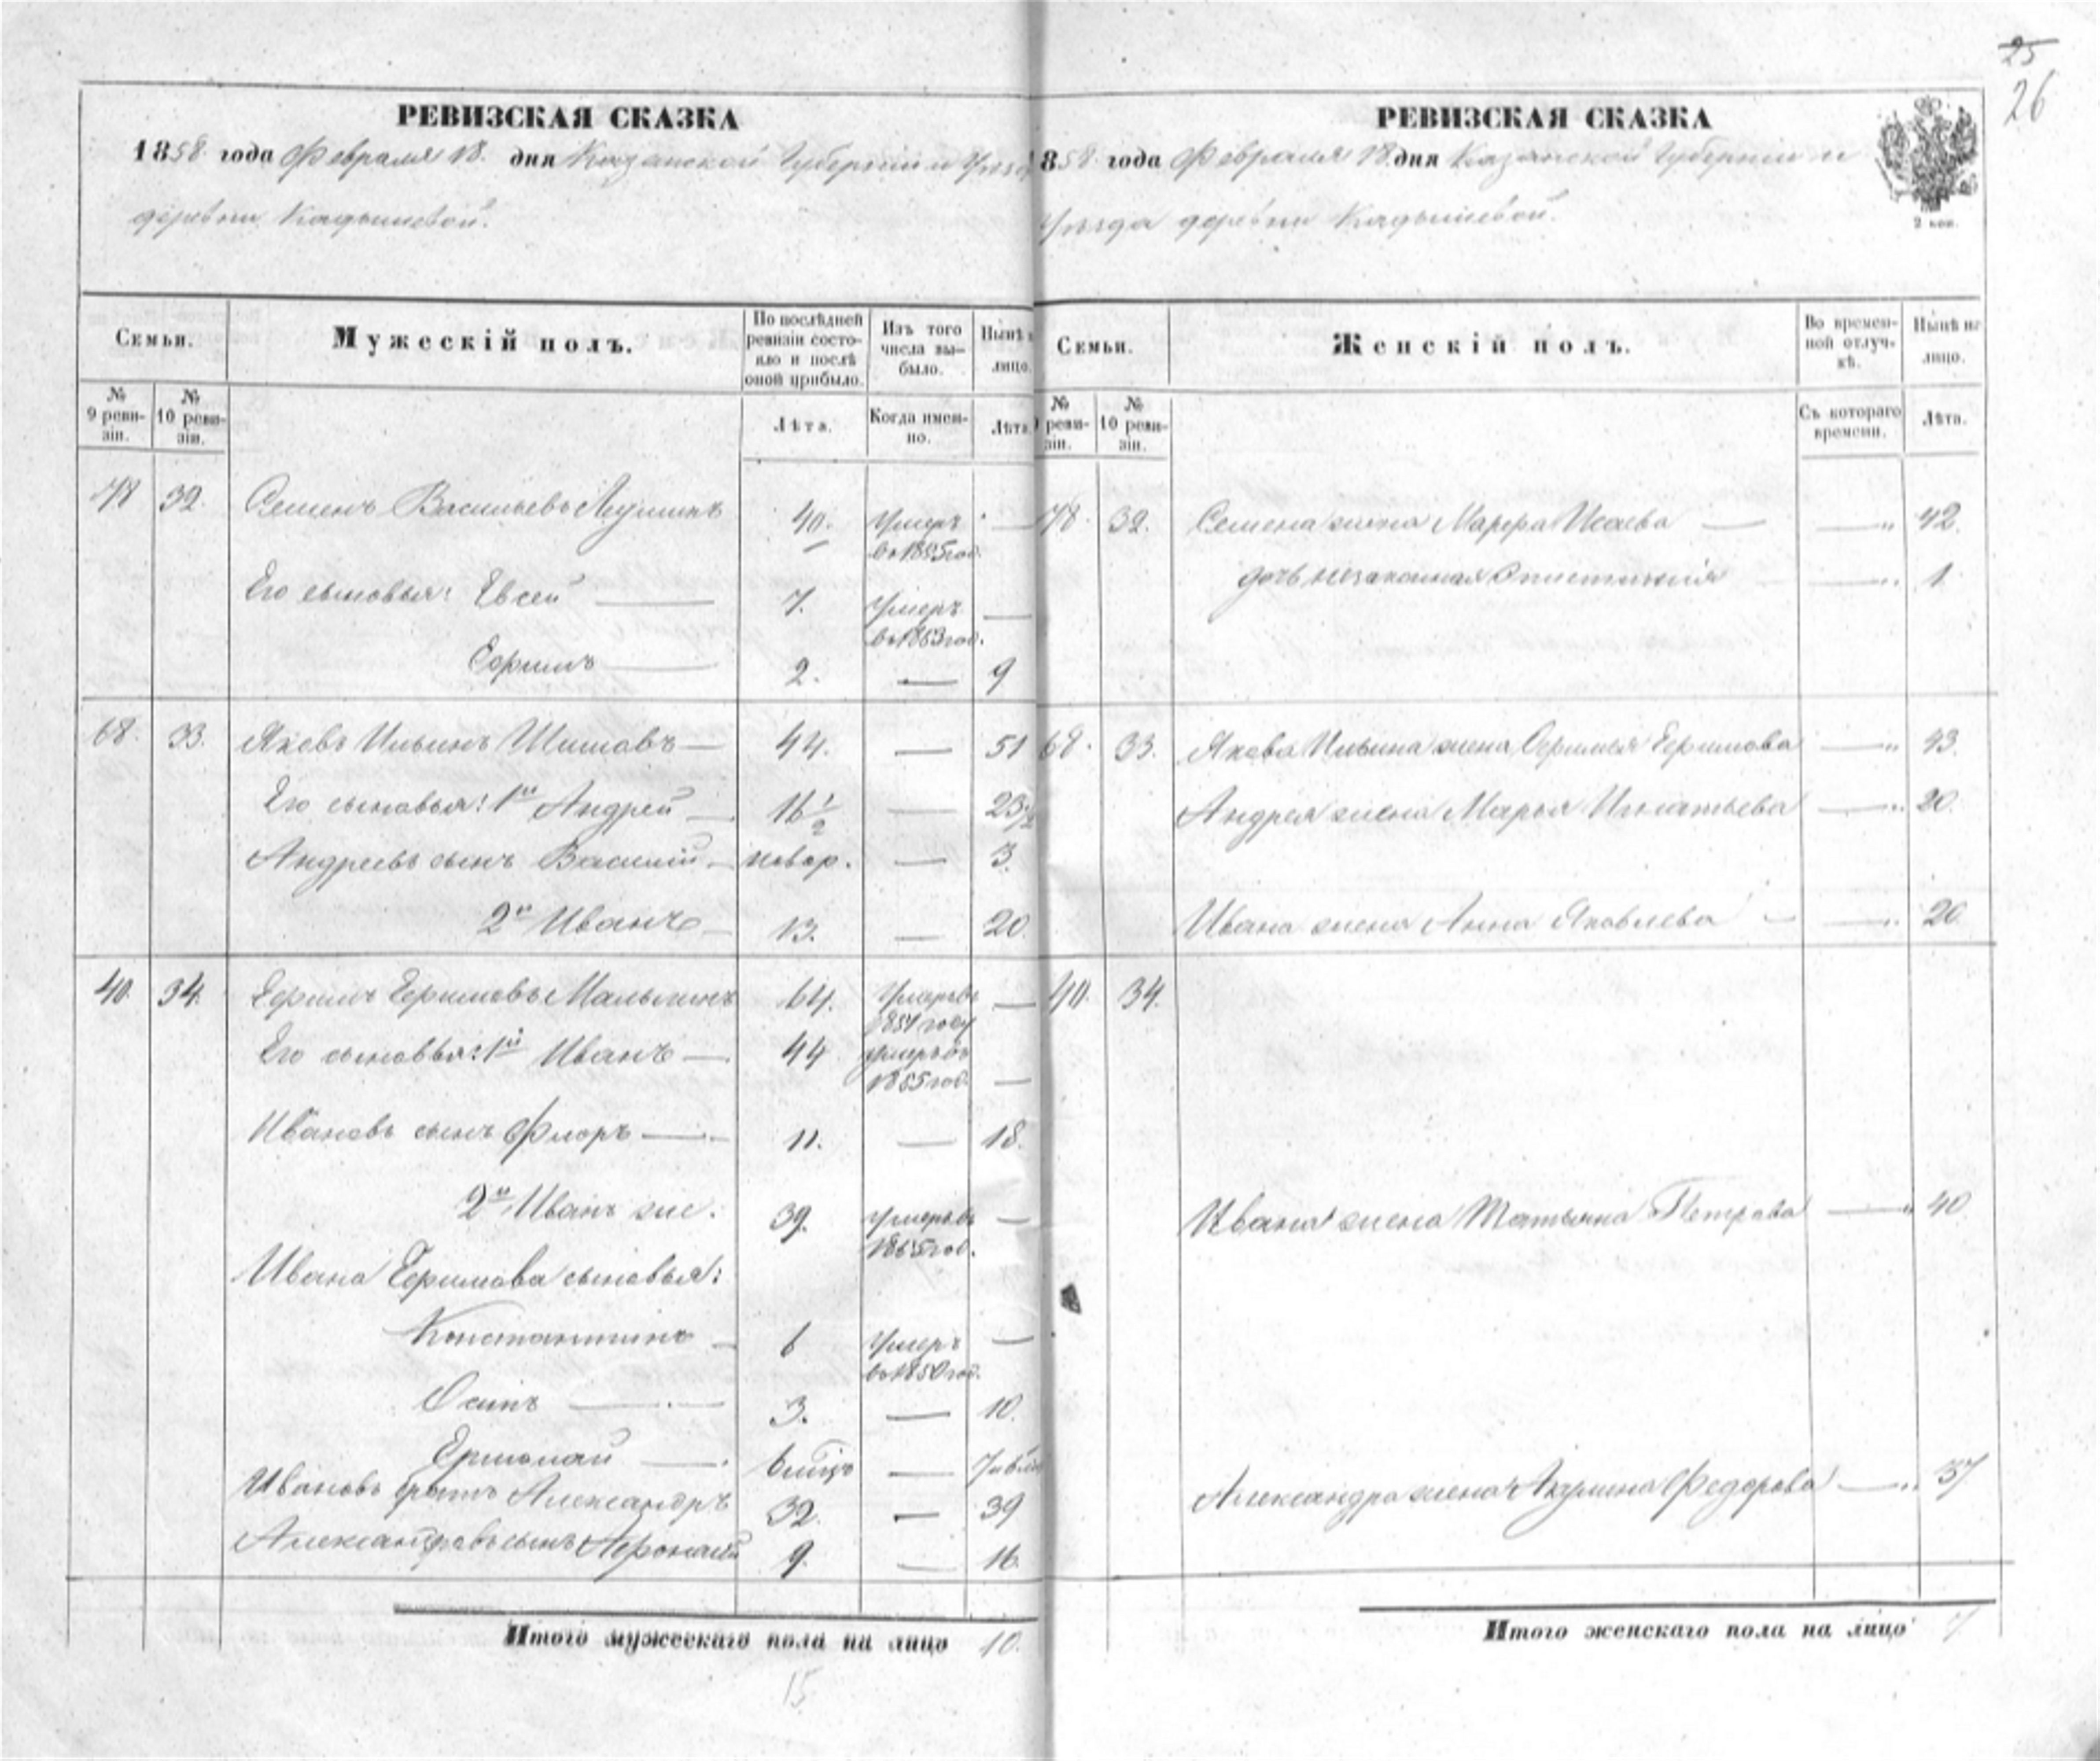 25
26
РЕВИЗСКАЯ СКАЗКА
1858 года Февраля 18. дня Казанской Губернiи и Уѣзд
деревни Кадышевой.
Семьи.
Мужескiй полъ.
По послѣдней ревизiи состояло и послѣ оной прибыло.
Изъ того числа выбыло.
Нынѣ лицо.
№ 9 ревизiи.
№ 10 ревизiи.
Лѣта.
Когда именно.
Лѣта
78 32. Семенъ Васильевъ 40. Умеръ —
во 1855 год.
Его сыновья: Евсей — 7. Умеръ —
во 1853 год.
Ефимъ — 2. — 9
68. 33. Яковъ Ильинъ Шишовъ — 44. — 51
Его сыновья: 1й Андрей — 16 1/2 — 23 1/2
Андреевъ сынъ Василiй — новор. — 3.
2й Иванъ — 13. — 20.
40. 34. Ефимъ Ефимовъ Малышъ 64. Умеръ въ —
1851 году
Его сыновья: 1й Иванъ — 44 умеръ въ
1855 год. —
Ивановъ сынъ Флоръ — 11. — 18.
2й Иванъ же. 39. Умеръ въ —
1855 год.
Ивана Ефимова сыновья:
Константинъ — 6 Умеръ —
во 1850 год.
Осипъ — 3. — 10.
Ермолай — —
Ивановъ братъ Александръ 32. — 39
Александровъ сынъ Афонасiй 9. — 16.
Итого мужескаго пола на лицо 10.
15
РЕВИЗСКАЯ СКАЗКА
858 года Февраля 18. дня Казанской Губернiи и
Уѣзда деревни Кадышевой.
2 коп.
Семьи.
Женскiй полъ.
Во временной отлучкѣ.
Нынѣ на лицо.
№ ревизiи.
№ 10 ревизiи.
Съ котораго времени.
Лѣта.
78. 32. Семена жена Марфа Исаева — — 42.
дочь незаконная — 1.
68. 33. Якова Ильина жена Ефимья Ефимова — 43.
Андрея жена Марья Игнатьева — 20.
Ивана жена Анна Яковлева — — 20.
40. 34.
Ивана жена Татьяна Петрова — 40
Александра жена Акулина Федорова — 37
Итого женскаго пола на лицо 7